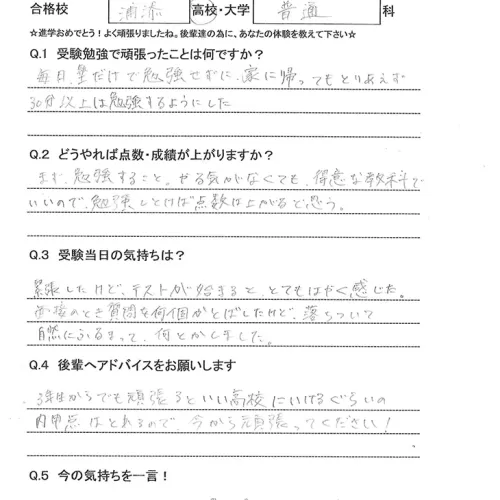 合格校 浦添 高校・大学 普通 科
☆進学おめでとう！よく頑張りましたね。後輩達の為に、あなたの体験を教えて下さい☆
Q.1 受験勉強で頑張ったことは何ですか？
毎日塾だけで勉強せずに、家に帰ってもとりあえず
30分以上は勉強するようにした
Q.2 どうやれば点数・成績が上がりますか？
まず、勉強すること。やる気がなくても、得意な教科で
いいので、勉強しとけば点数は上がると思う。
Q.3 受験当日の気持ちは？
緊張したけど、テストが始まると、とてもはやく感じた。
面接のとき質問を何個かとばしたけど、落ちついて
自然にふるまって、何とかしました。
Q.4 後輩へアドバイスをお願いします
3年生からでも頑張るといい高校にいけるぐらいの
内申点はとれるので、今から頑張ってください！
Q.5 今の気持ちを一言！